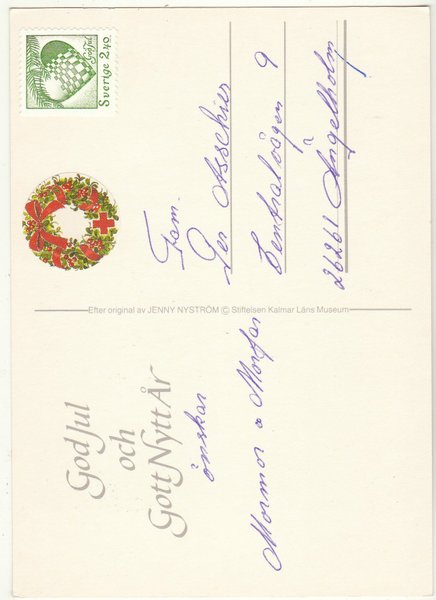 God Jul
och
Gott Nytt År
önskar
Mormor o Morfar
Efter original av JENNY NYSTRÖM © Stiftelsen Kalmar Läns Museum
God Jul
Sverige 2.40
Fam.
Per
Centralvägen 9
26261 Ängelholm